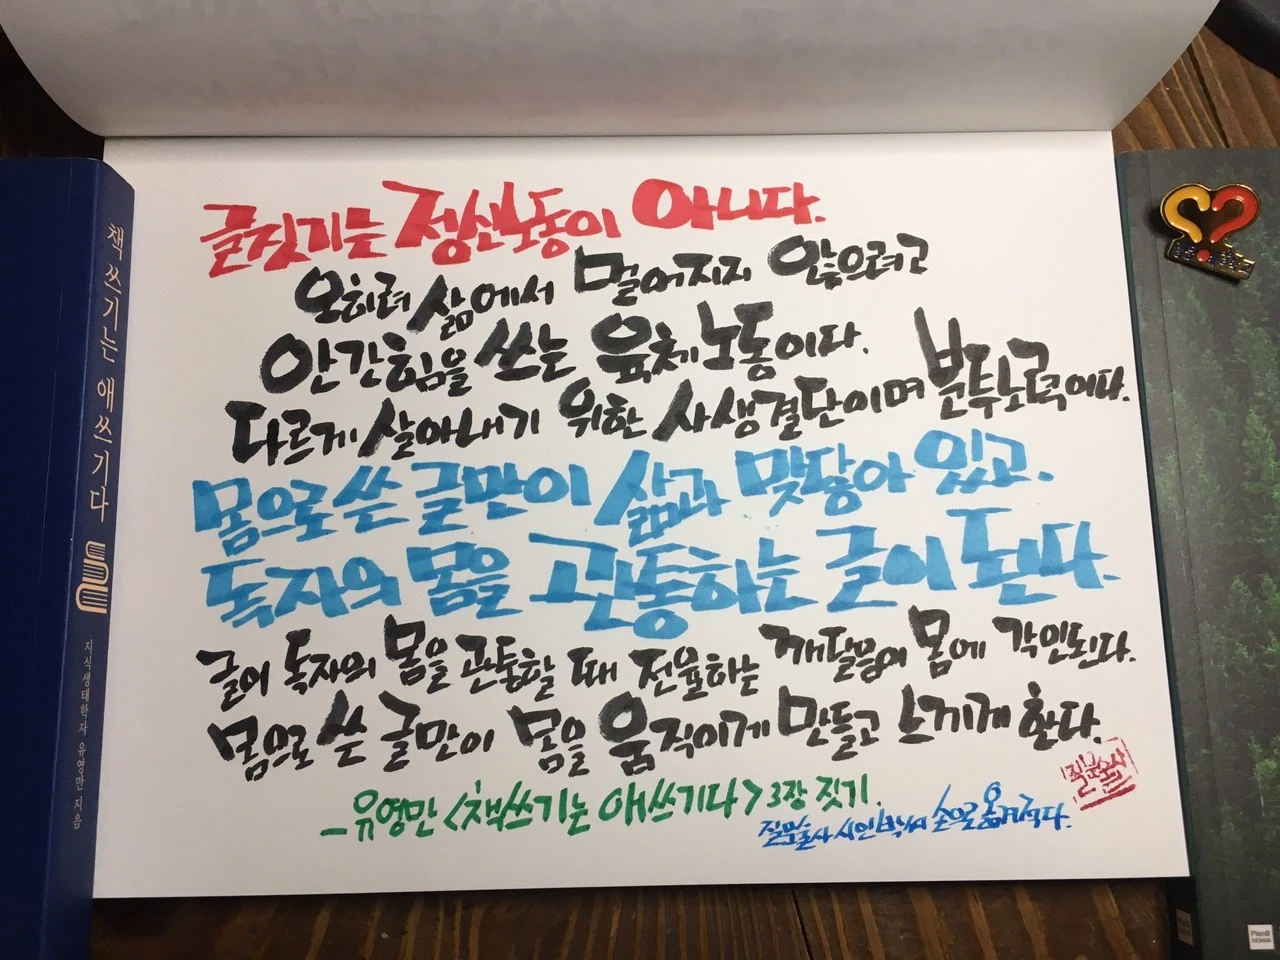 글짓기는 정신노동이 아니다.
오히려 삶에서 멀어지지 않으려고
안간힘을 쓰는 육체노동이다.
다르게 살아내기 위한 사생결단이며 분투노력이다.
몸으로 쓴 글만이 삶과 맞닿아 있고.
독자의 몸을 관통하는 글이 된다.
글이 독자의 몸을 관통할 때 전율하는 깨달음이 몸에 각인된다.
몸으로 쓴 글만이 몸을 움직이게 만들고 느끼게 한다.
- 유영만 <책쓰기는 애쓰기다> 3장 짓기.
질문술사 시인박씨 손으로 옮겨적다.
질문술사
책 쓰기는 애쓰기다
지식생태학자 유영만 지음
PlanB
DESIGN